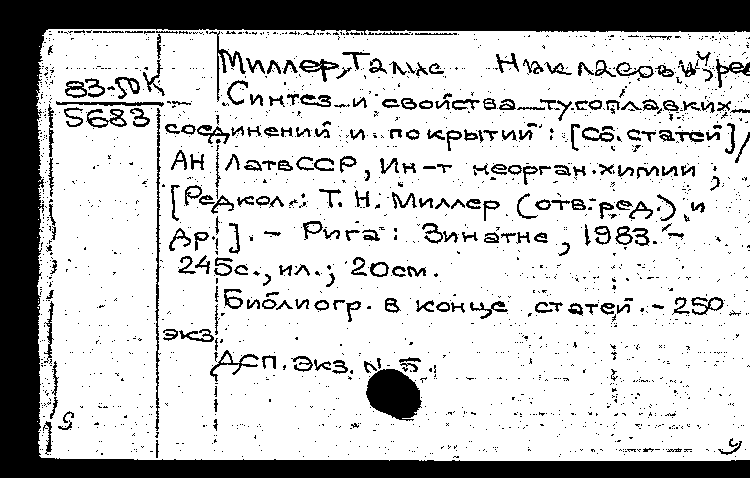 83-50К
5683
Миллер, Талис Никласович, ред
Синтез и свойства тугоплавких
соединений и покрытий : [Сб. статей] /
АН ЛатвССР, Ин-т неорган. химии ;
[Редкол.: Т. Н. Миллер (отв. ред.) и
др. ]. - Рига : Зинатне, 1983. -
245с., ил.; 20см.
Библиогр. в конце статей. - 250
экз.
ДСП. Экз. N 5.